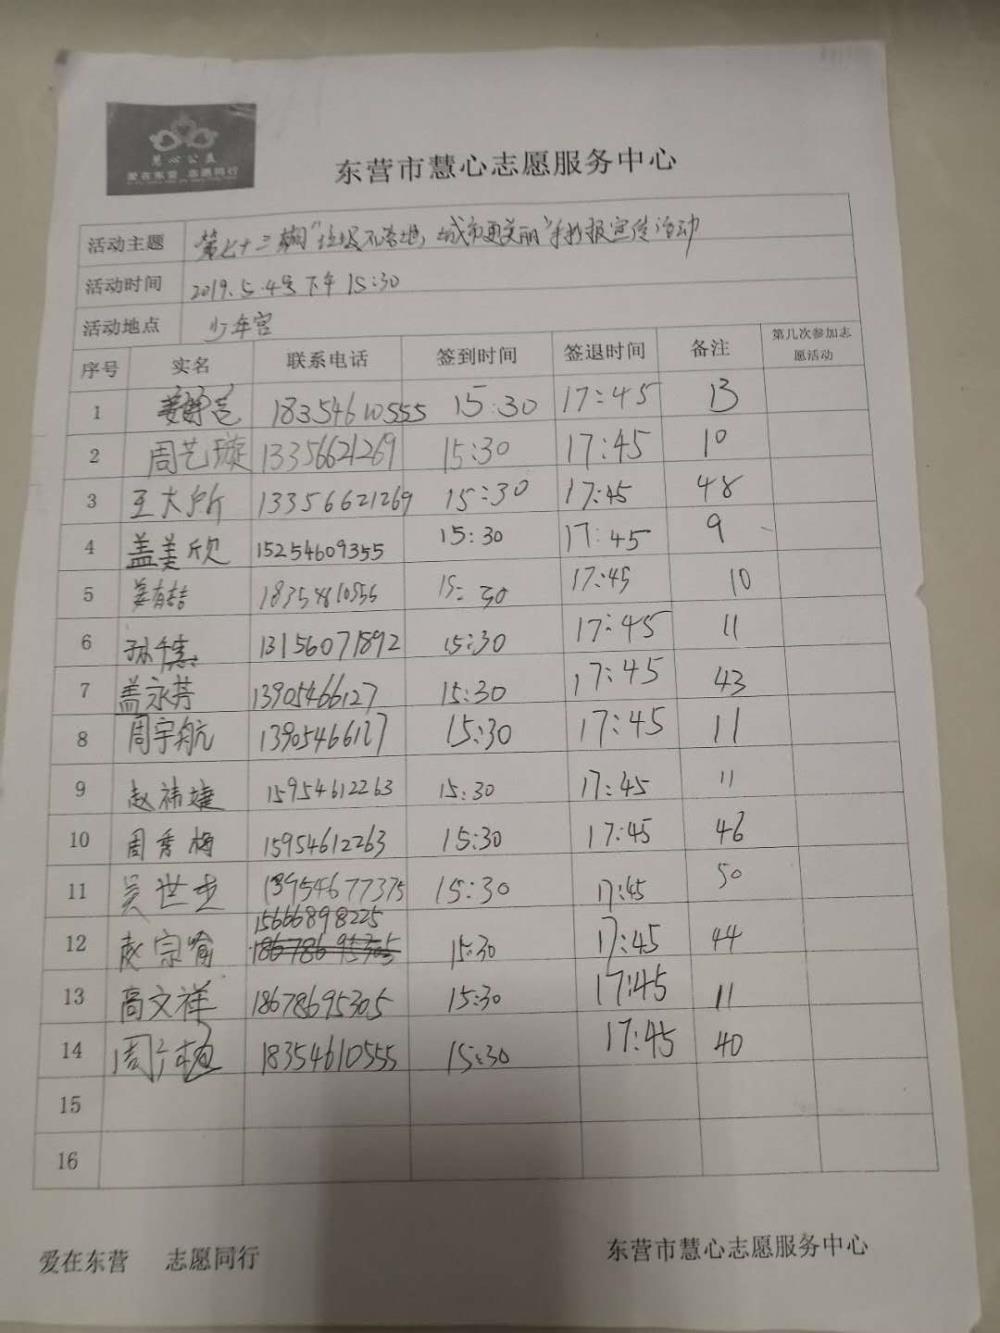 慧心公益
爱在东营 志愿同行
东营市慧心志愿服务中心
活动主题 第七十三期"垃圾不落地,城市更美丽"手抄报宣传活动
活动时间 2019.5.4号下午15:30
活动地点 少年宫
序号 实名 联系电话 签到时间 签退时间 备注 第几次参加志愿活动
1 18354610555 15:30 17:45 13
2 周艺璇 13356621269 15:30 17:45 10
3 王大所 13356621269 15:30 17:45 48
4 盖美欣 15254609355 15:30 17:45 9
5 15:30 17:45 10
6 孙 13156071892 15:30 17:45 11
7 盖永芬 13905466127 15:30 17:45 43
8 周宇航 13905466127 15:30 17:45 11
9 赵祎婕 15954612263 15:30 17:45 11
10 周秀梅 15954612263 15:30 17:45 46
11 吴世 13954677375 15:30 17:45 50
12 赵宗喻 15666898225 18678695305 15:30 17:45 44
13 高文祥 18678695305 15:30 17:45 11
14 周 18354610555 15:30 17:45 40
15
16
爱在东营 志愿同行 东营市慧心志愿服务中心